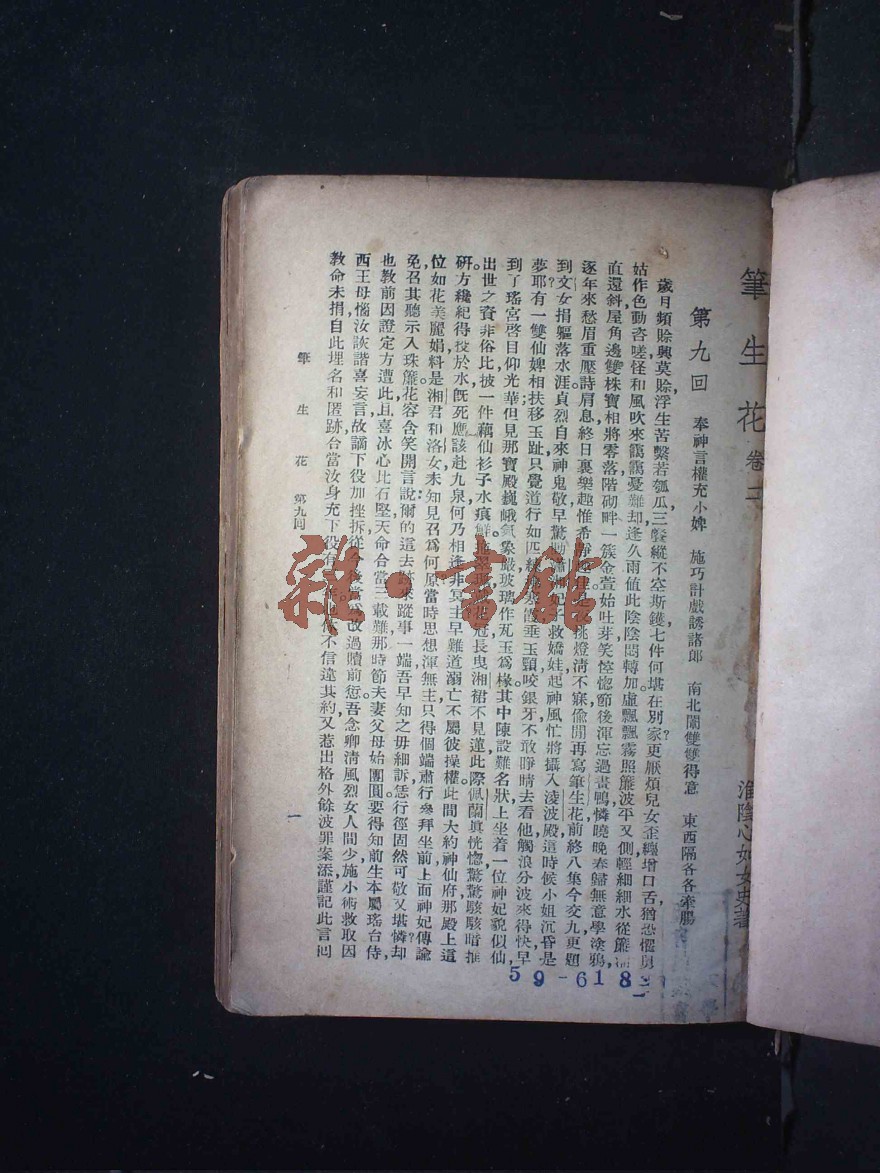 筆生花 卷三
淮陰心如女史著
第九回 奉神言權充小婢 施巧計戲誘諸郎 南北闈雙雙得意 東西隔各各牽腸
歲月頻賒興莫賒浮生苦繫若瓠瓜三餐縱不空斯鑊七件何堪在別家更厭煩兒女歪纏增口舌猶恐懼舅
姑作色動咨嗟怪和風吹來靄靄憂難却逢久雨值此陰陰悶轉加虛飄飄霧照簾波平又側輕細細水從簷
直還斜屋角邊雙株寶相將零落階砌畔一簇金萱始吐芽笑倥偬節後渾忘過畫鴨憐曉晚春歸無意學塗鴉,
逐年來愁眉重壓詩肩息終日裏樂趣惟希
挑燈清不寐偷閒再寫筆生花前終八集今交九更題
到文女捐軀落水涯貞烈自來神鬼敬早驚動瀟湘
救嬌娃起神風忙將攝入淩波殿這時候小姐沉昏是
夢耶有一雙仙婢相扶移玉趾只覺道行如匹練
垂玉頸咬銀牙不敢睜睛去看他觸浪分波來得快早
到了瑤宮啓目仰光華但見那寶殿巍峨氣象嚴玻璃作瓦玉爲椽其中陳設難名狀上坐着一位神妃貌似仙
出世之資非俗比披一件藕仙衫子水痕鮮
花冠長曳湘裙不見蓮此際佩蘭眞恍惚驚驚駭駭暗推
研方纔紀得投於水旣死應該赴九泉何乃相逢非冥主早難道溺亡不屬彼操權此間大約神仙府那殿上這
位如花美麗娟料是湘君和洛女未知見召爲何原當時思想渾無主只得個端肅行參拜坐前上面神妃傳諭
免召其聽示入珠簾花容含笑開言說爾的這去跡來蹤事一端吾早知之毋細訴恁行徑固然可敬又堪憐却
也教前因證定方遭此且喜冰心比石堅天命合當三載難那時節夫妻父母始團圓要得知前生本屬瑤台侍
西王母惱汝詼諧喜妄言故謫下役加挫折從今後當爲改過贖前愆吾念卿清風烈女人間少施小術救取因
教命未捐自此埋名和匿跡台當汝身充下役有
不信違其約又惹出格外餘波罪案添謹記此言
筆生花 第九回
一
59-618
雜·書館